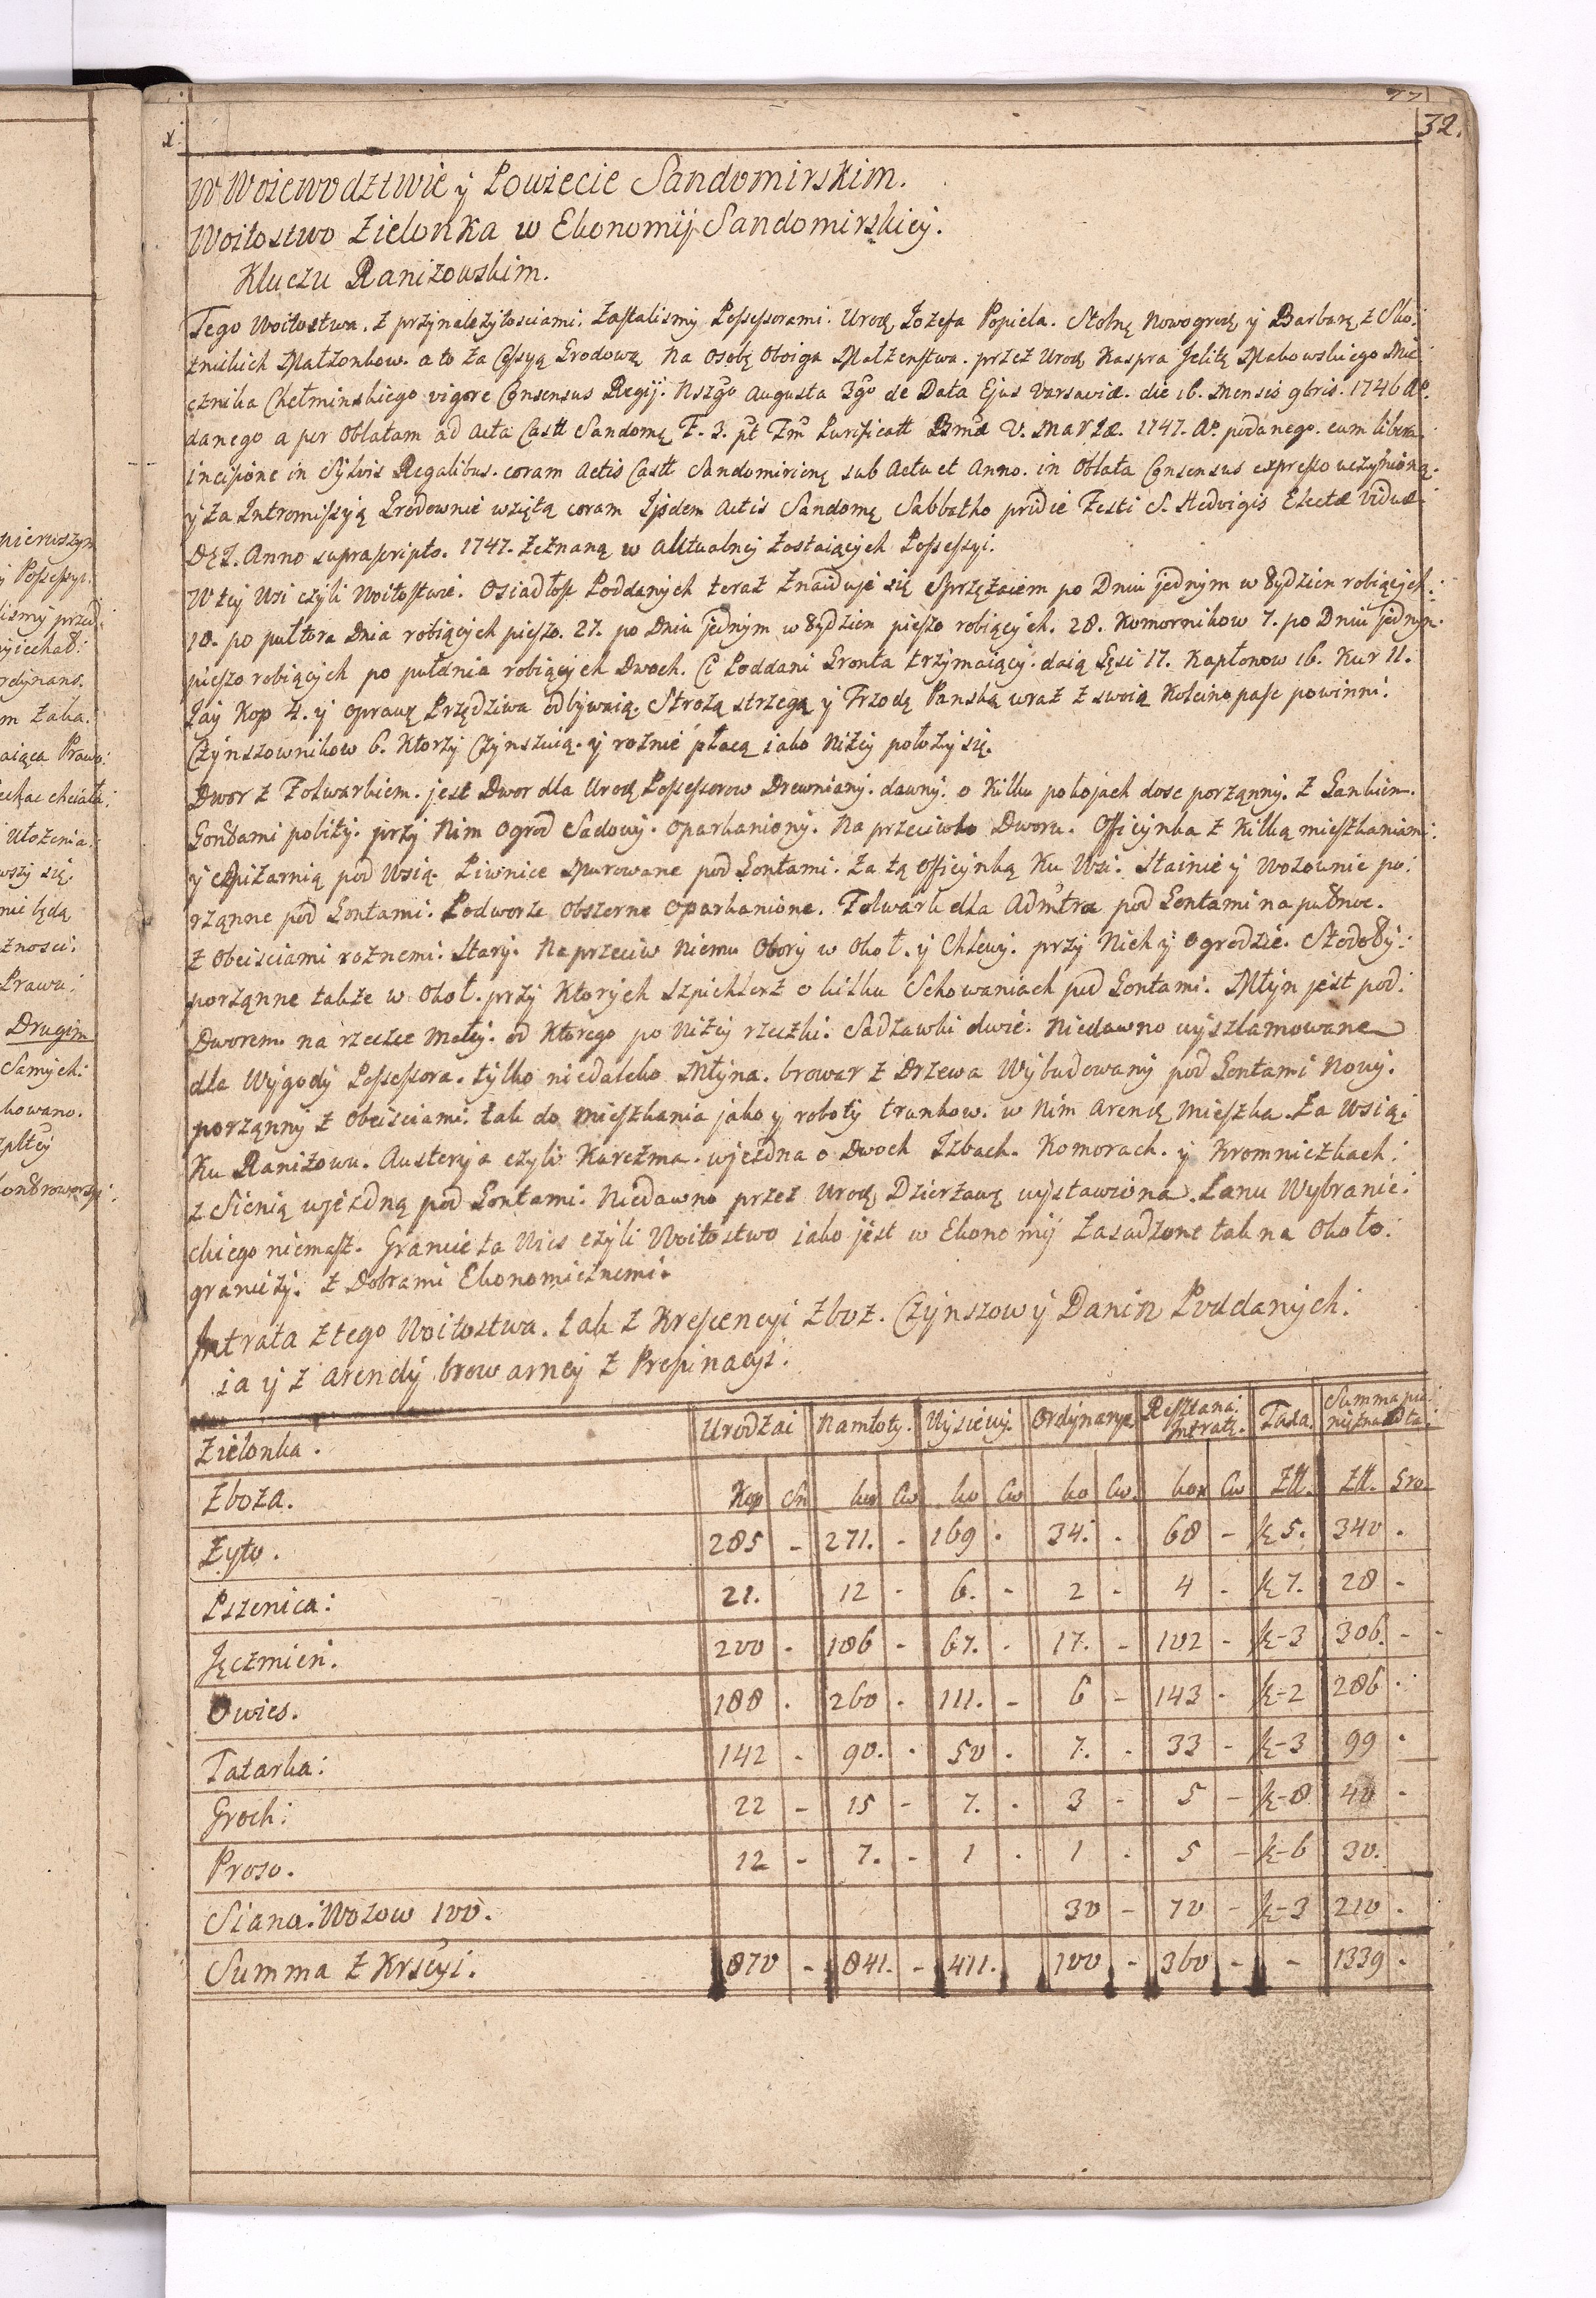 77
32.
W Woiewodztwie y Powiecie Sandomirskim.
Woitostwo Zielonka w Ekonomij Sandomirskiey.
Kluczu Ranizowskim.
Tego Woitostwa. z przynależytosciami. Zastalismy Possessorami. Urod Jozefa Popiela. Stolnę Nowogrod y Barbarę z Sko:
znickich Małzonkow. a to za Cessyą Grodową na osobę oboiga Małzenstwa. przez Urod Kaspra Jelitę Makowskiego Mie
cznika Chełminskiego vigore Consensus Regij. Nszgo Augusta 3go de Data Ejus Varsaviæ. die 16. Mensis 9bris. 1746 Ao.
danego a per Oblatam ad Acta Castt Sandomę F. 3. pt Fm Purificatt Bmæ V. Mariæ. 1747. Ao. podanego. cum libera
incisione in Sylvis Regalibus. coram Actis Castt Sandomirienę sub Actu et Anno. in Oblata Consensus expresso uczynioną.
y za Intromissyą Grodownie wziętą coram Ijsdem Actis Sandomę Sabbatho pridie Festi S. Hedvigis Electæ Viduæ
Anno suprascripto. 1747. zeznaną w aktualney zostaiących Possessyi.
W tey Wsi czyli Woitostwie. Osiadłosc Poddanych teraz znaiduje się Sprzężaiem po Dniu jednym w Tydzien robiących.
10. po pułtora Dnia robiących pieszo. 27. po Dniu jednym w Tydzien pieszo robiących. 28. Komornikow 7. po Dniu jednym
pieszo robiących po pułdnia robiących Dwoch. Ci Poddani Gronta trzymaiący. daią Gęsi 17. Kapłonow 16. Kur 11.
Jay Kop 4. y oprawę Przędziwa odbywaią. Strożą strzegą y Trzodę Panską wraz z swoią Koleino pasc powinni.
Czynszownikow 6. Ktorzy Czynszuią. y roznie płacą iako niżey położy się.
Dwor z Folwarkiem. jest Dwor dla Urod Possessorow Drewniany. dawny. o kilku pokojach dosc porządny. z Gankiem.
Gontami pobity. przy nim ogrod Sadowy. oparkaniony. Na przeciwko Dworu. Officynka z kilką mieszkaniami
y Spizarnią pod Wsią. Piwnice Murowane pod Gontami. Za tą officynką ku Wsi. Stainie y Wozownie po:
rządne pod Gontami. Podworze obszerne oparkanione. Folwark dla Admtra pod Gontami na pułnoc.
z obeisciami roznemi. Stary. Naprzeciw niemu Obory w okoł. y Chlewy. przy Nich y ogrodzie. Stodoły.
porządne także w okoł. przy Ktorych Szpichlerz o kilku Schowaniach pod Gontami. Młyn jest pod:
Dworem. na rzeczce małey. od Ktorego po niżey rzeczki. Sadzawki dwie. Niedawno wyszlamowane
dla Wygody Possessora. tylko niedaleko Młyna. browar z Drzewa Wybudowany pod Gontami Nowy.
porządny z Obeisciami. tak do mieszkania jako y roboty trunkow. w Nim Arendę mieszka. Za Wsią
Ku Ranizowu. Austerya czyli Karczma. wjezdna o Dwoch Izbach. Komorach. y Kromniczkach.
z Sienią wjezdną pod Gontami. Niedawno przez Urod Dzierżawę wystawiona. Łanu Wybranie:
ckiego niemasz. Granice ta Wies czyli Woitostwo iako jest w Ekonomij zasadzone tak na około.
graniczy. z Dobrami Ekonomicznemi.
Intrata z tego Woitostwa. tak z Krescencyi Zboz. Czynszow y Danin Poddanych.
ia y z Arendy browarney z Propinacyi.
Zielonka. Urodzai Namłoty. Wysiewy. Ordynarye Resztana: Intratę. Taxa. Summa pie nięzna
Zboza. Kop Sn ko Cw ko Cw ko Cw. kor Cw Złł. Złł. Gro
Zyto. 285 - 271. - 169 . 34. . 68 - k 5. 340 .
Pszenica: 21. 12 - 6. - 2 - 4 - k 7. 28 -
Jęczmień. 200 - 186 - 67. . 17. - 102 - k-3 306. -
Owies. 188 . 260 . 111. - 6 - 143 - k-2 286 .
Tatarka: 142 - 90. . 50 . 7. . 33 - k-3 99 .
Groch: 22 - 15 - 7. . 3 - 5 - k-8 40 -
Proso. 12 - 7. - 1 . 1 . 5 - k-6 30.
Siana. Wozow 100. 30 - 70 - k-3 210 .
Summa z Krscyi. 870 - 841. - 411. 100 - 360 - - 1339 .
pierwszym
y Possessyi.
lismy przed
yiechał:
rdynans.
m Zaka.
aiąca Prawo:
chac chciała:
Ułożenia:
wszy się.
nie będą
znosci.
Prawa:
Drugim
Samych:
kowano.